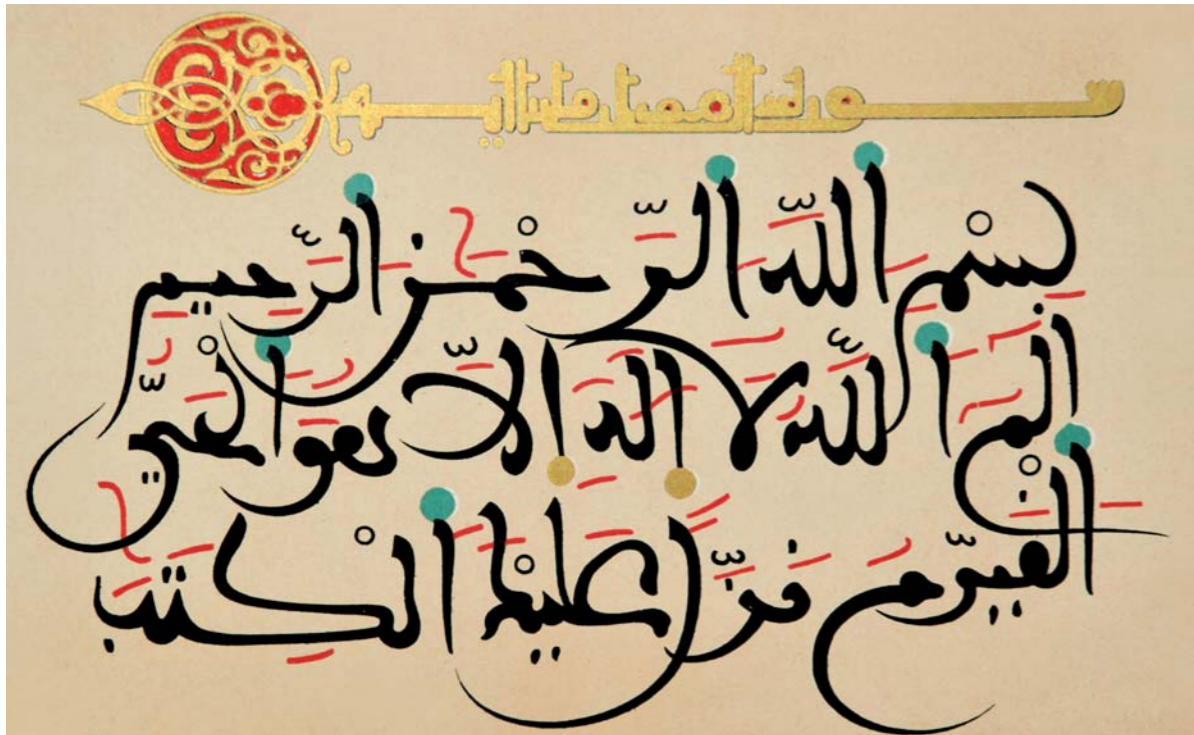 سورة ال عمران
بِسْمِ اَللَّهِ اَلرَّحْمَٰنِ اَلرَّحِيمِ
أَلَمِّ اَللَّهُ لَا إِلَٰهَ إِلَّا هُوَ اَلْحَيُّ
اَلْقَيُّومُ نَزَّلَ عَلَيْكَ اَلْكِتَٰبَ